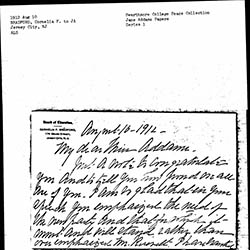 1912 Aug 10
BRADFORD, Cornelia F. to JA
Jersey City, NJ
ALS
Swarthmore College Peace Collection
Jane Addams Papers
Series 1
Board of Education.
CORNELIA F. BRADFORD,
August 10 - 1912 -
My dear Miss Addams.
Just a note to congratulate
you and to tell you how proud we all
are of you. I am so glad that in your
speech you emphasized the need of
the new party and that for which it
and will stand rather than
emphasized Mr. Roosevelt